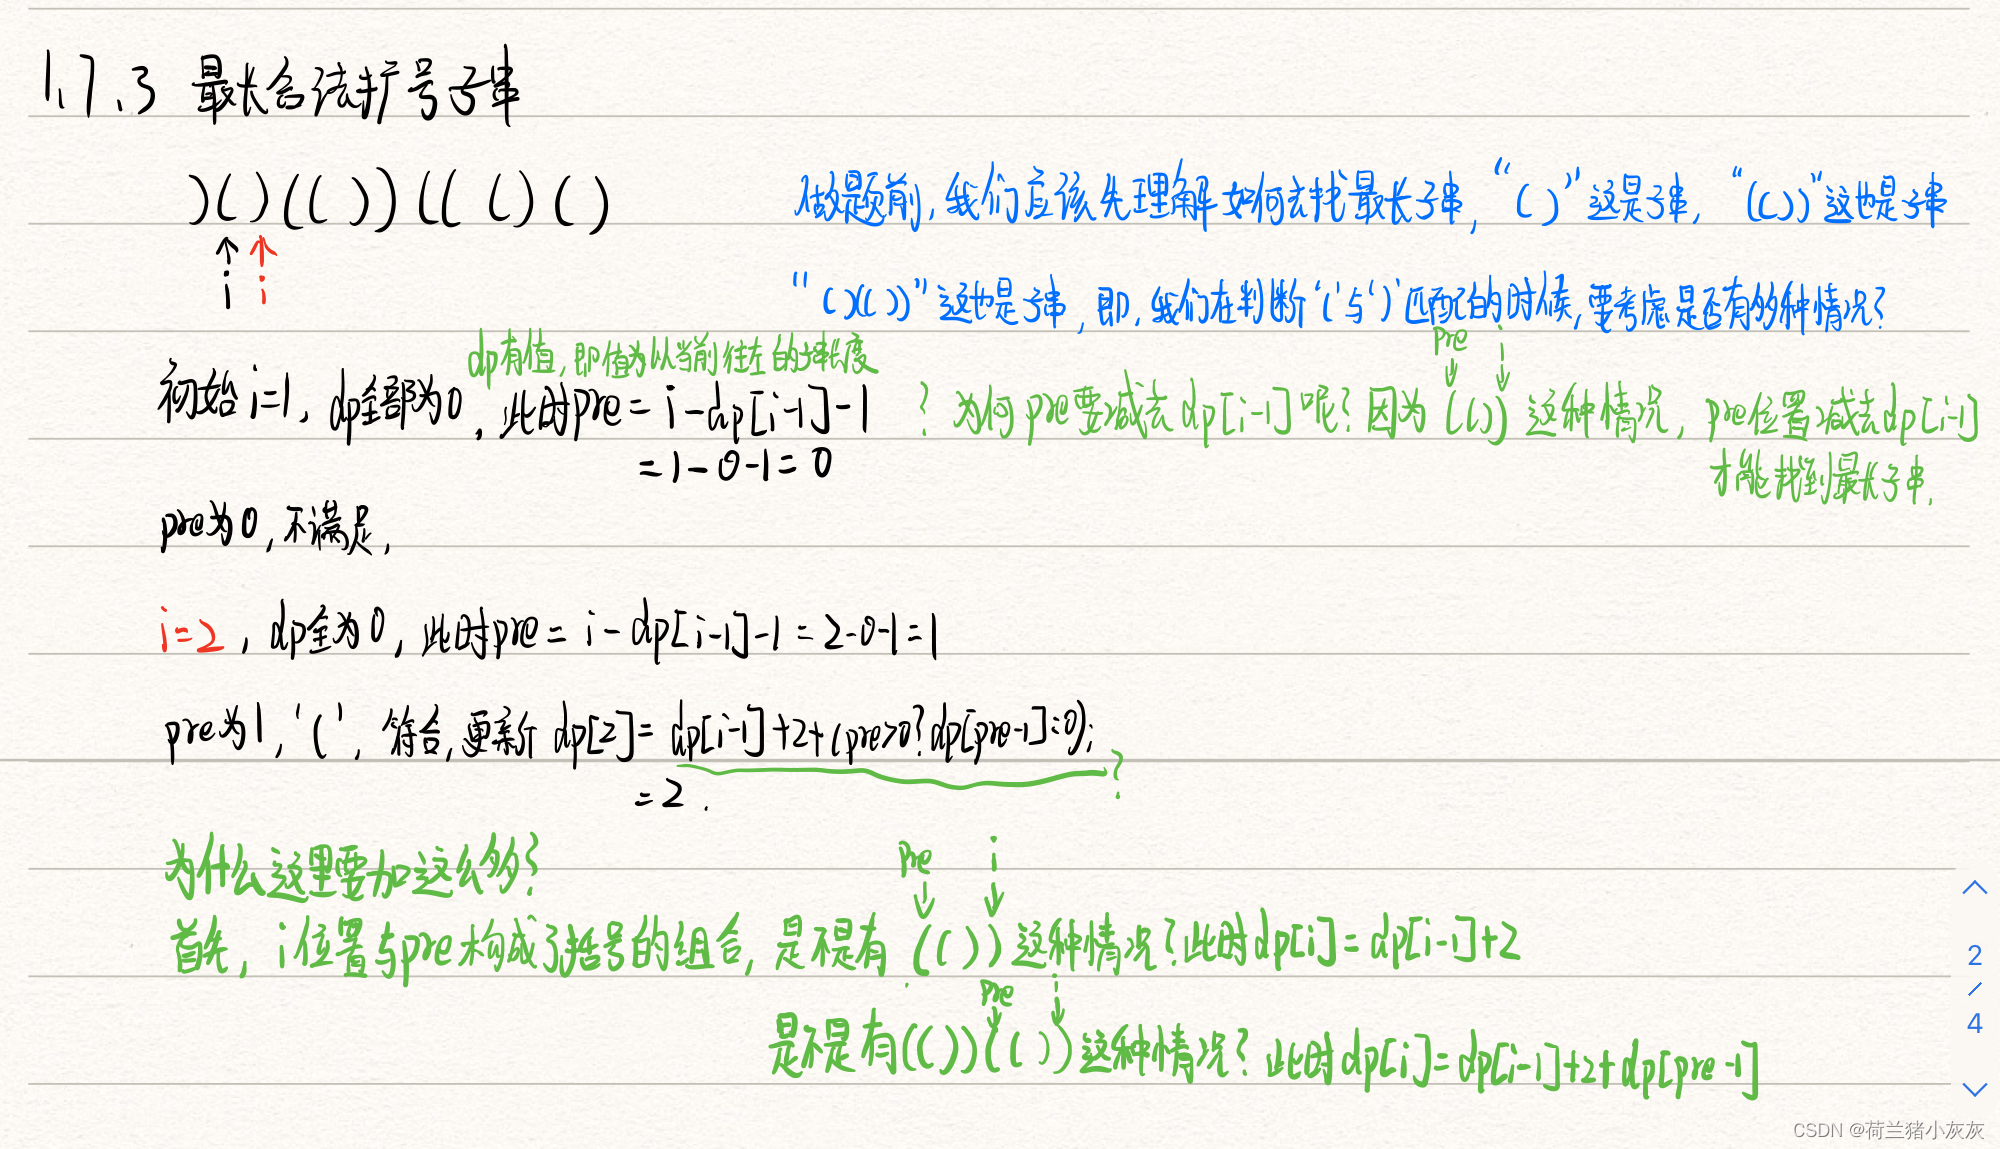 1.7.3 最长合法扩号子串
)()(())((()()
做题前,我们应该先理解如何去找最长子串,“()”这是子串,“(())”这也是子串
i i
“()(())”这也是子串,即,我们在判断‘(’与‘)’匹配的时候,要考虑是否有多种情况?
dp有值,即值为以当前往左的子串长度
pre i
初始i=1,dp全部为0,此时pre=i-dp[i-1]-1
?为何pre要减去dp[i-1]呢?因为(())这种情况,pre位置减去dp[i-1]
=1-0-1=0
才能找到最长子串.
pre为0,不满足,
i=2,dp全为0,此时pre=i-dp[i-1]-1=2-0-1=1
pre为1,‘(’,符合,更新dp[2]=dp[i-1]+2+(pre>0?dp[pre-1]:0);
?
=2.
为什么这里要加这么多?
pre i
首先,i位置与pre构成了括号的组合,是不是有(())这种情况?此时dp[i]=dp[i-1]+2
pre i
是不是有(())(())这种情况?此时dp[i]=dp[i-1]+2+dp[pre-1]
2
/
4
CSDN @荷兰猪小灰灰